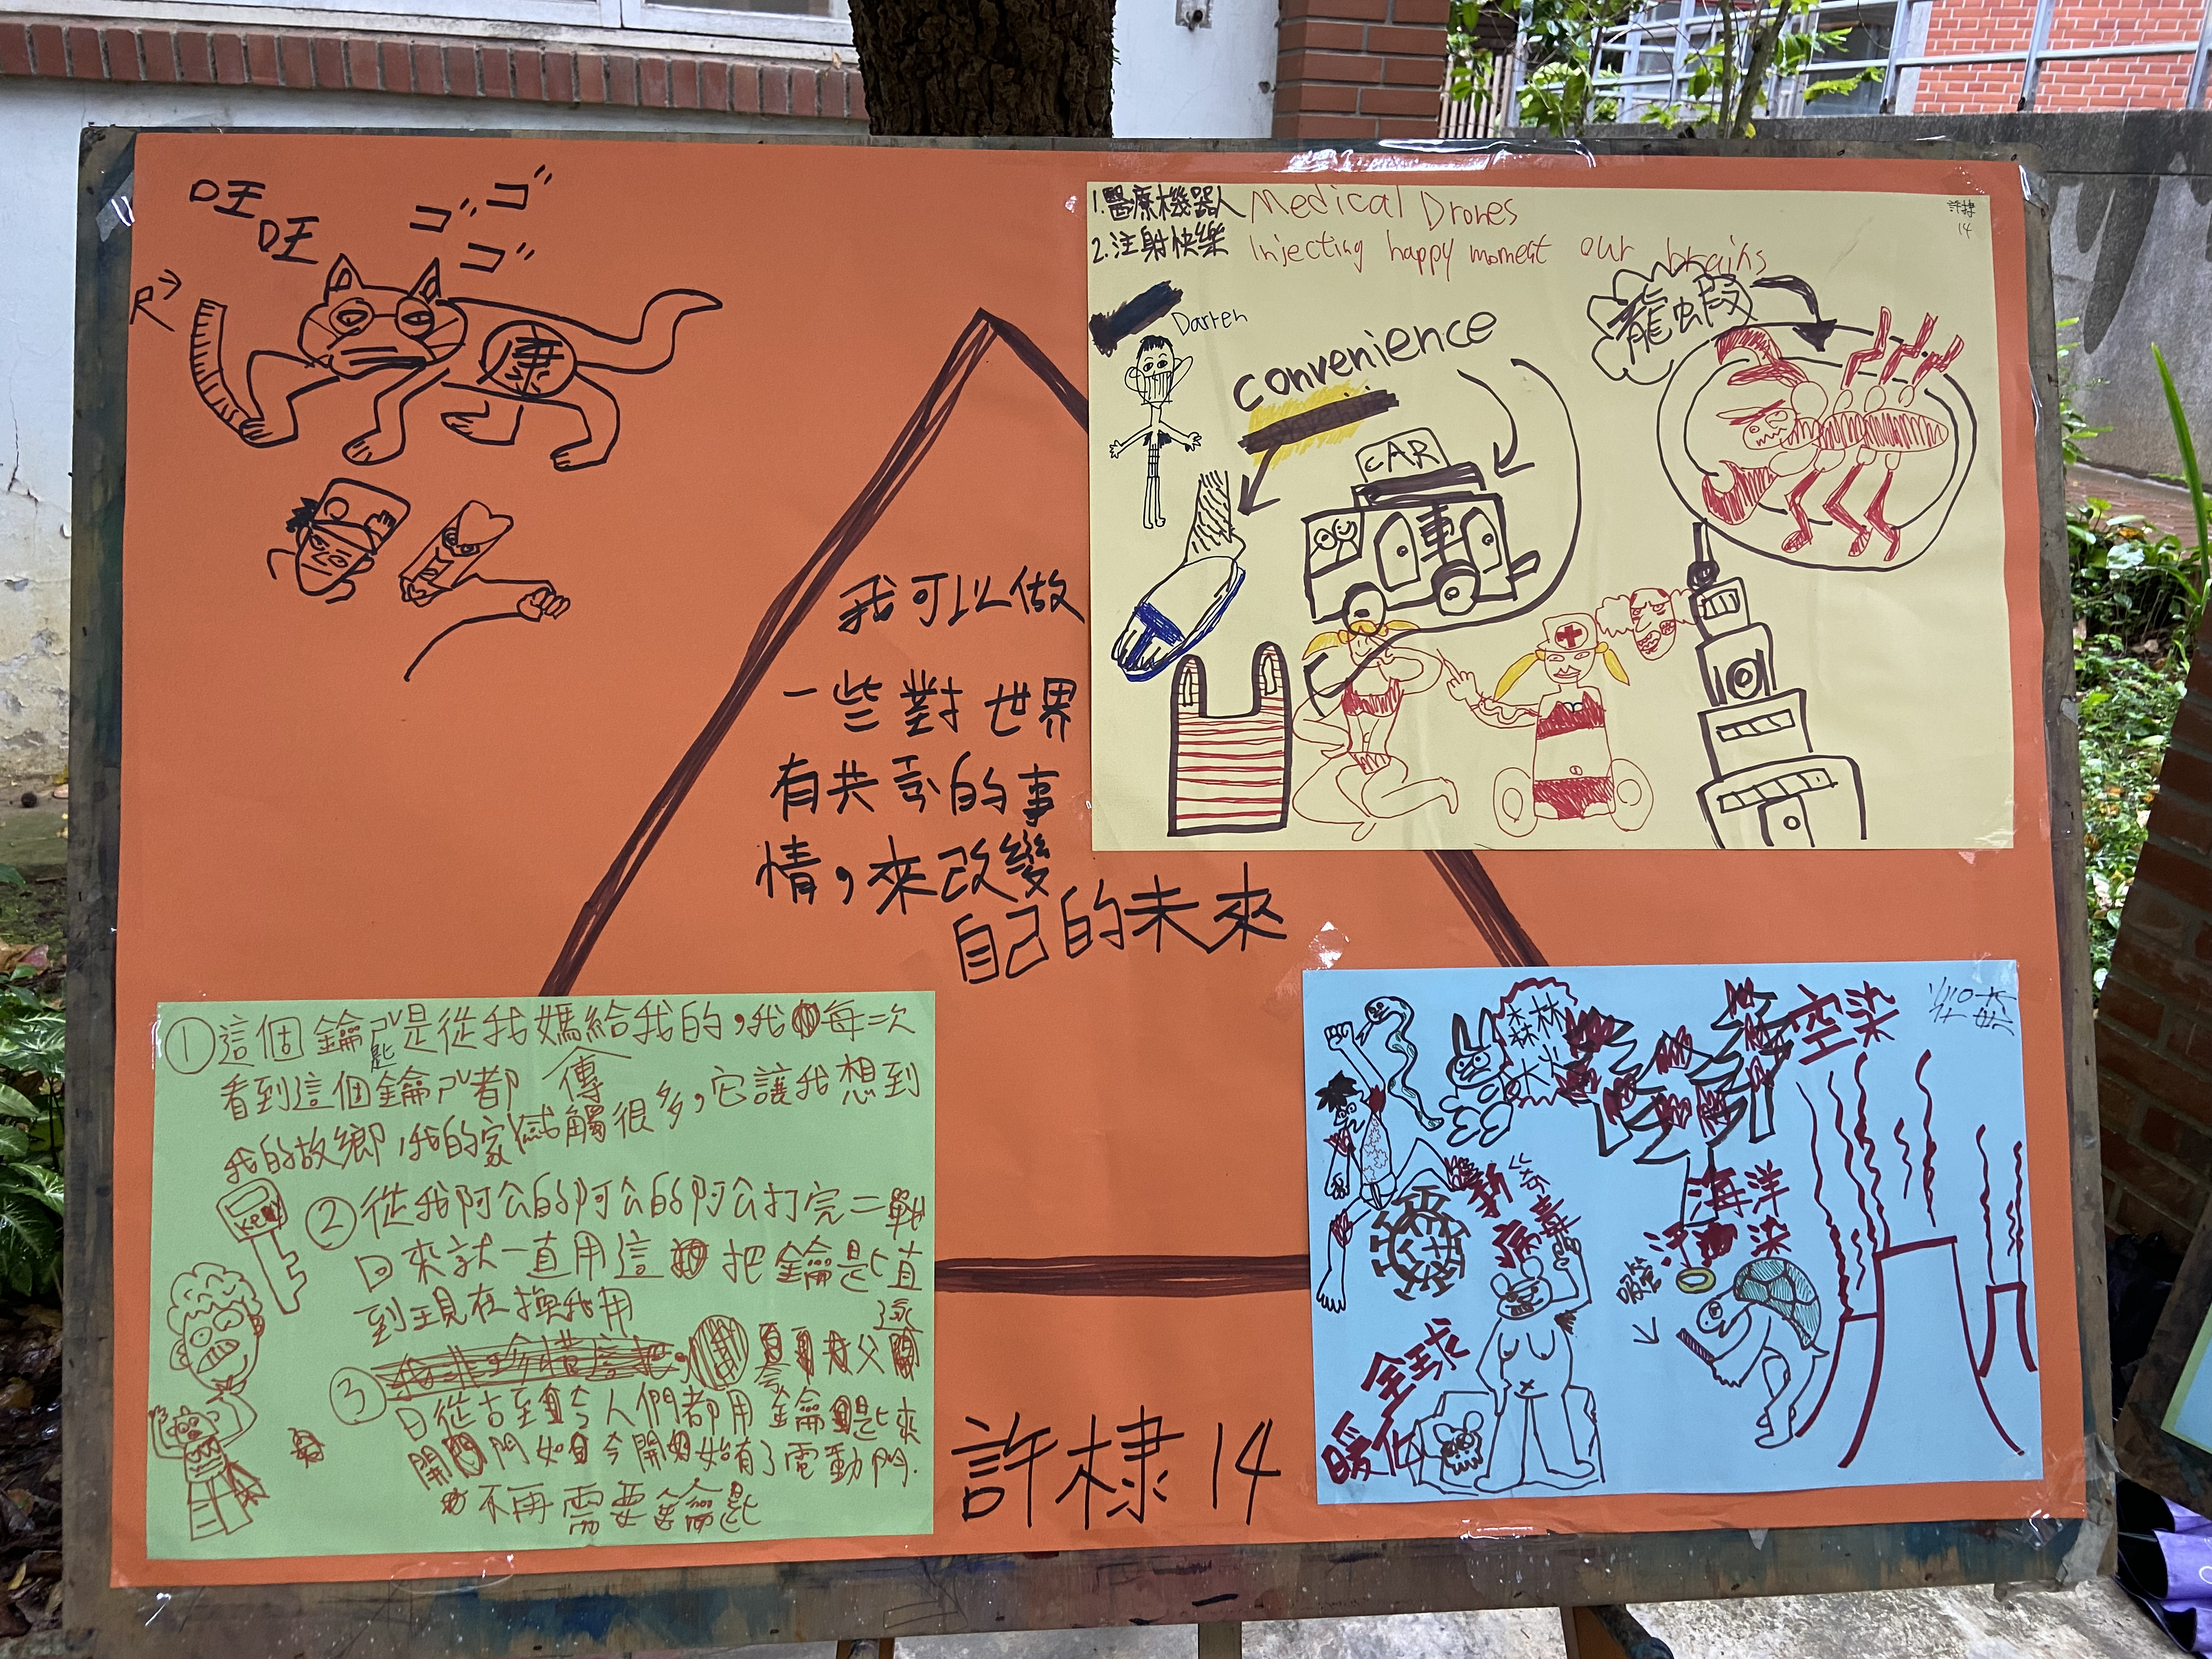 旺
旺
ㄈ"
ㄈ"
ㄈ"
康
我可以做
一些對世界
有共
的事
情，來改變
自己的未來
許棣 14
1.醫療機器人 Medical Drones
2.注射快樂 Injecting happy moment our brains
許棣
14
Darren
convenience
CAR
車
龍蝦
①這個鑰匙是從我媽給我的，我每次
看到這個鑰匙都
我的故鄉，我的家 感觸很多，它讓我想到
傳
Key
②從我阿公的阿公的阿公打完二戰
回來就一直用這把鑰匙直
到現在換我用
③
從古至今人們都用鑰匙來
開門如今開始有了電動門.
不再需要鑰匙
森林
大火
空染
新冠
病毒
海洋
汙染
吸管
全球
暖化